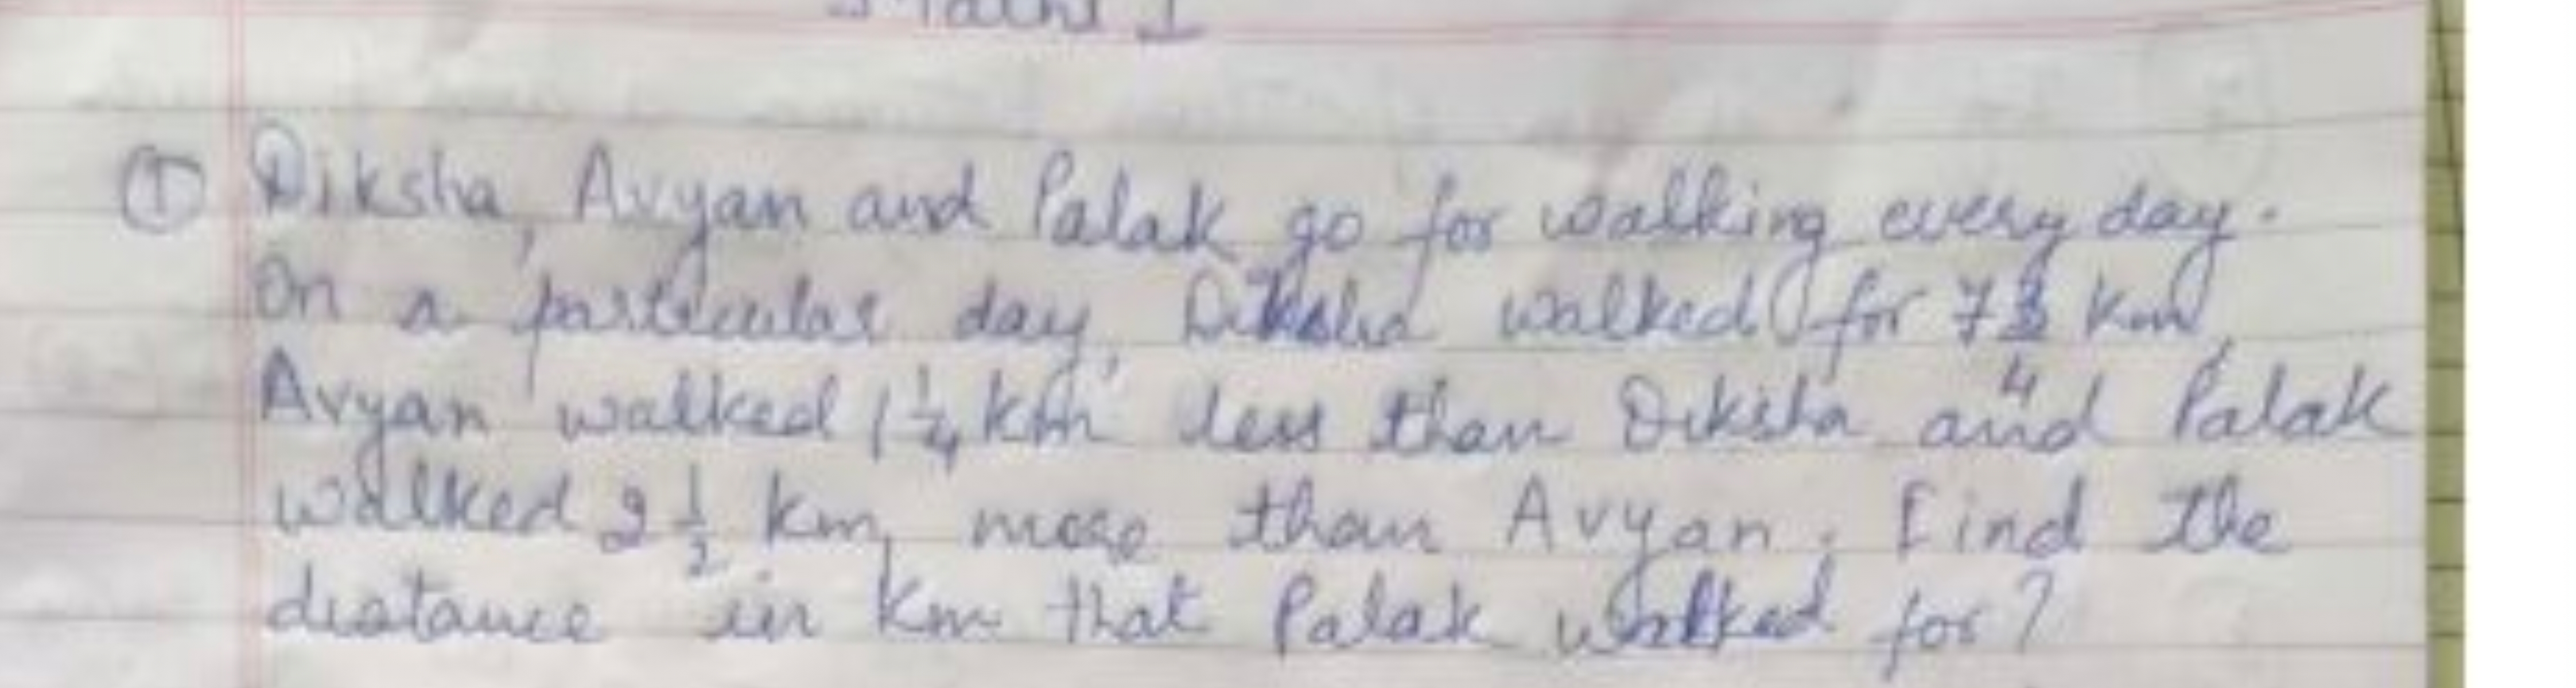 Maths 1
① Diksha, Avyan and Palak go for walking every day.
On a particular day, Diksha walked for 7 3/4 km,
Avyan walked 1 1/4 km less than Diksha and Palak
walked 2 1/2 km more than Avyan. Find the
distance in km that Palak walked for?